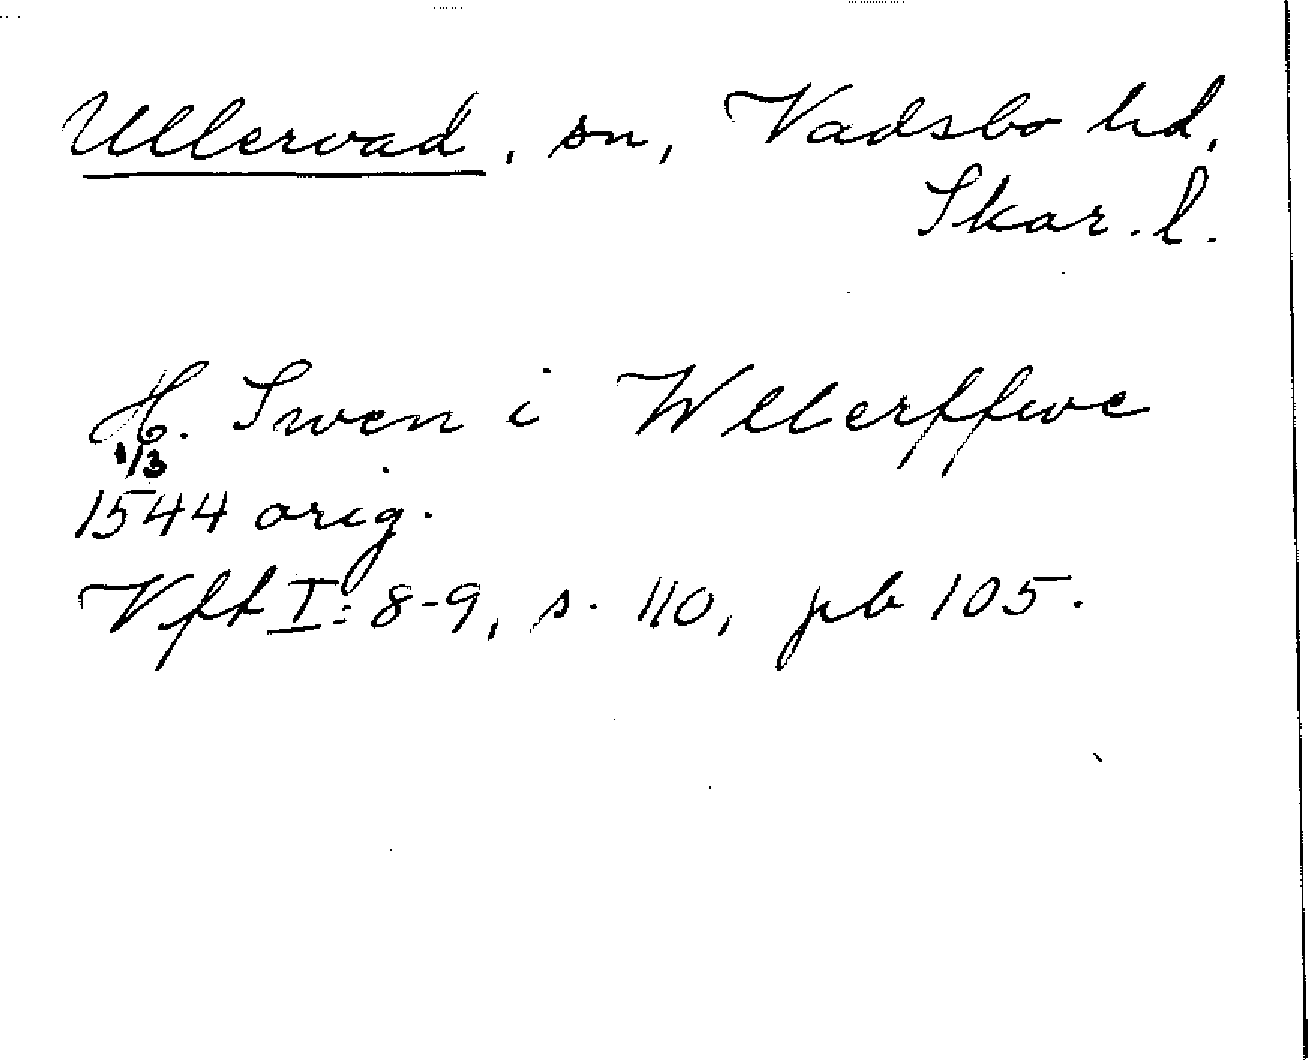 Ullervad, sn, Vadsbo hd,
Skar. l.
H. Swen i Wllerffwe
1/3
1544 orig.
Vfft I: 8-9, s. 110, pb 105.